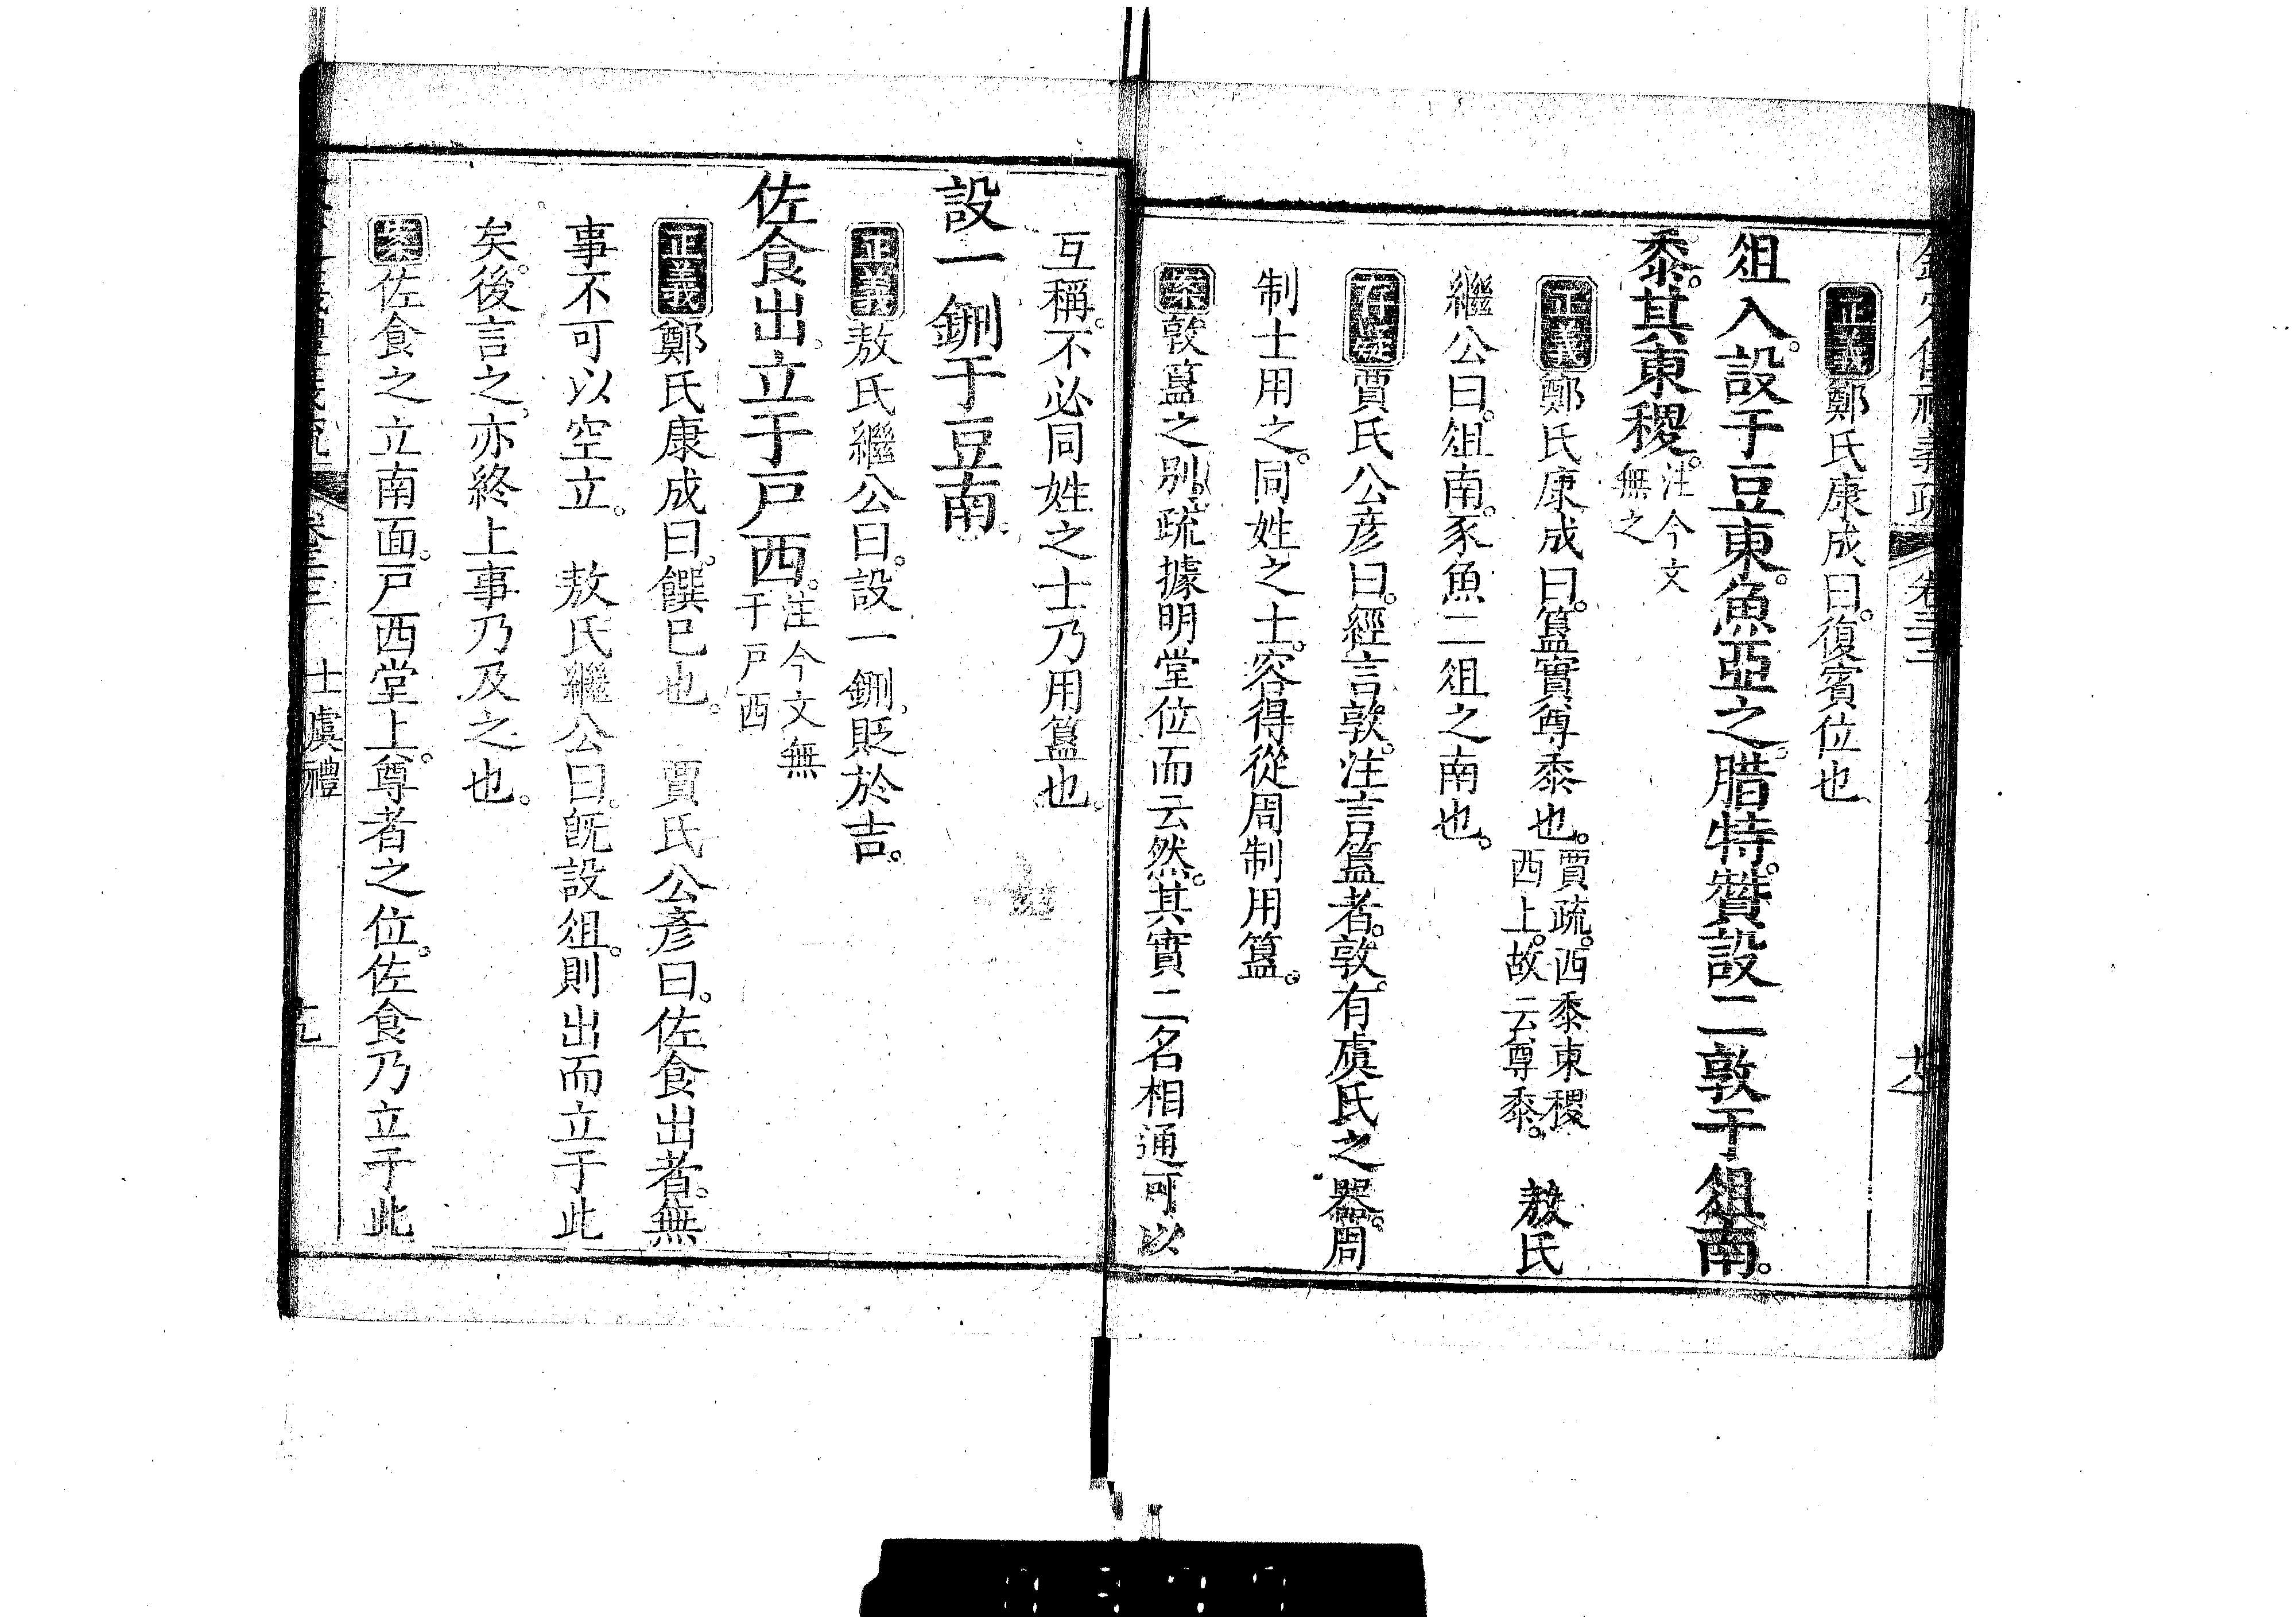 正義鄭氏康成曰。復賓位也
俎入。設于豆東。魚亞之。腊特。贊設二敦于俎南。
黍。其東稷。注今文無之
正義鄭氏康成曰。簋實尊黍也。賈疏。西黍東稷西上。故云尊黍。 敖氏
繼公曰。俎南。豕魚二俎之南也。
存疑賈氏公彥曰。經言敦。注言簋者。敦。有虞氏之器。周
制士用之。同姓之士。容得從周制用簋。
案敦簋之別。疏據明堂位而云然。其實二名相通可以
互稱。不必同姓之士乃用簋也。
設一鉶于豆南。
正義敖氏繼公曰。設一鉶。貶於吉。
佐食出。立于戶西。注今文無于戶西
正義鄭氏康成曰。饌已也。 賈氏公彥曰。佐食出者。無
事不可以空立。 敖氏繼公曰。旣設俎。則出而立于此
矣。後言之。亦終上事乃及之也。
案佐食之立南面。戶西堂上。尊者之位。佐食乃立于此
士虞禮